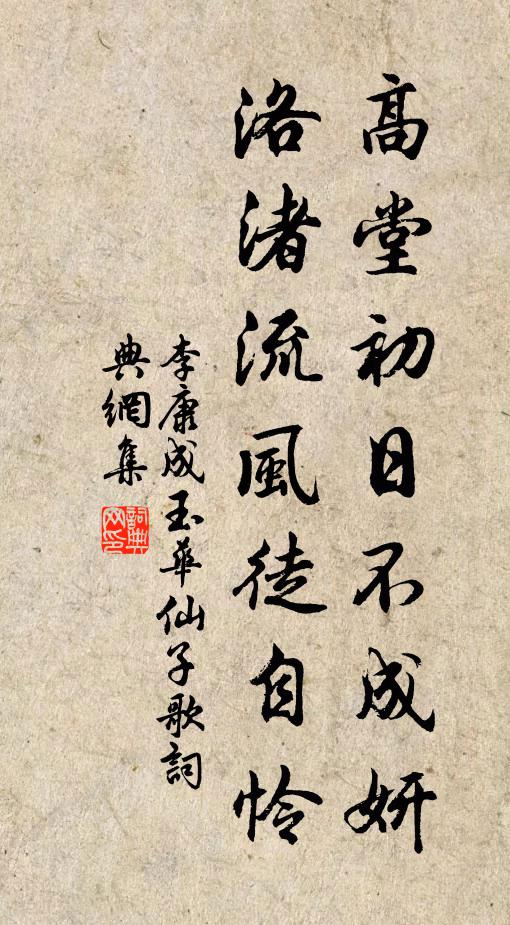 高堂初日不成妍
洛渚流風徒自怜
李康成玉華仙子歌詞
典網集
詞典網印